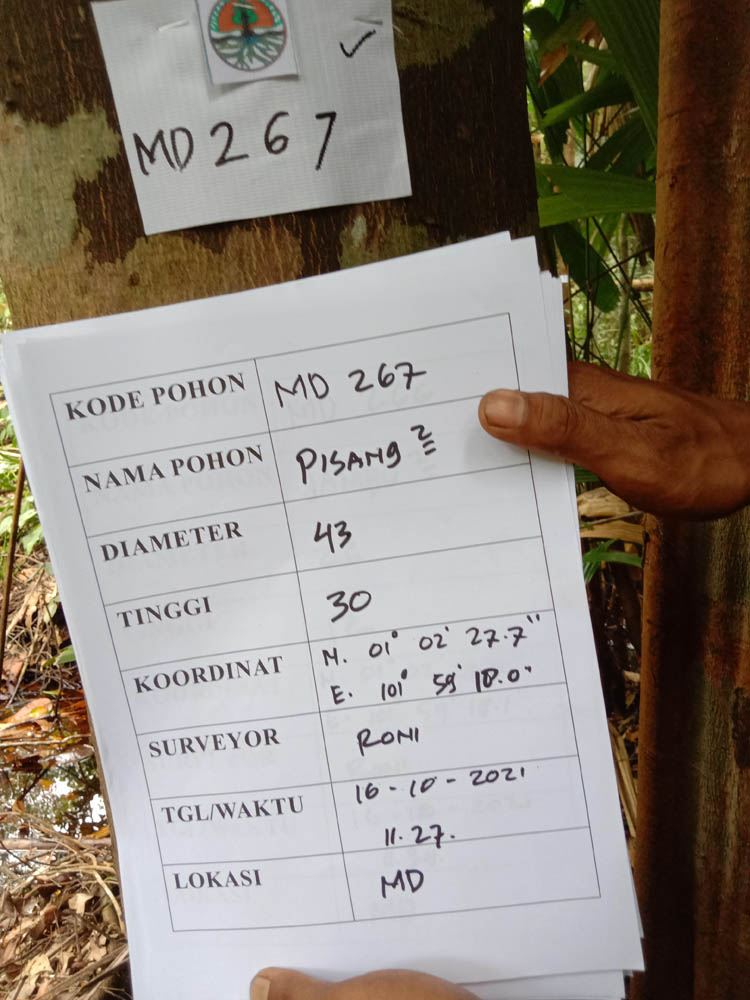 MD 267
KODE POHON MD 267
NAMA POHON PISANG 2
DIAMETER 43
TINGGI 30
KOORDINAT N. 01° 02' 27.7"
E. 101° 59' 18.0"
SURVEYOR RONI
TGL/WAKTU 16-10-2021
11.27.
LOKASI MD